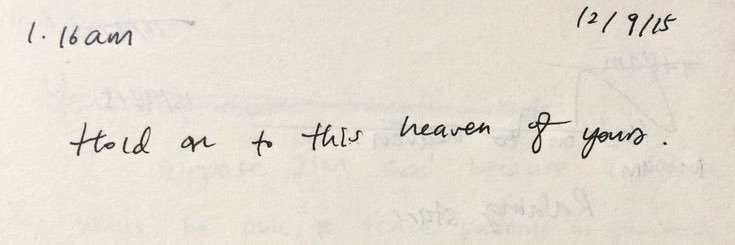 1.16am
12/9/15
Hold on to this heaven of yours.